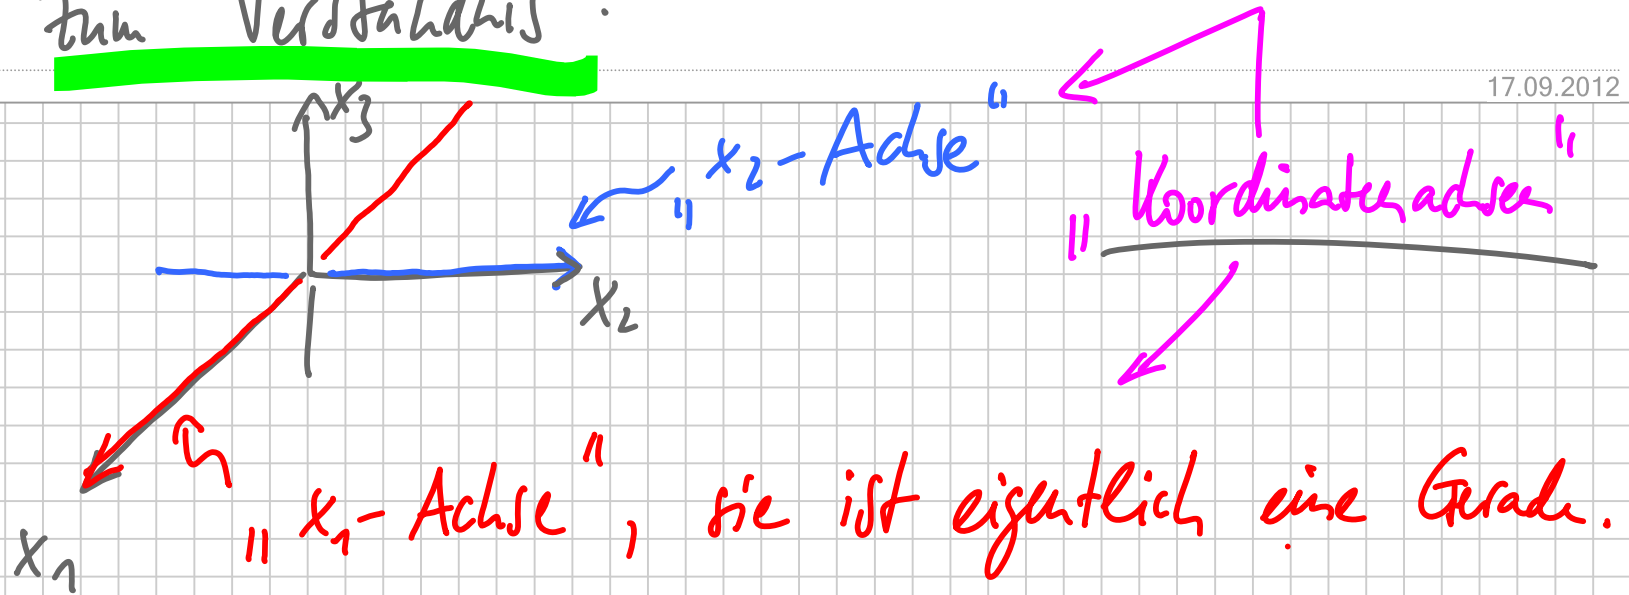 zum Verständnis :
17.09.2012
x3
"x2-Achse"
"Koordinatenachsen"
x2
"x1-Achse", sie ist eigentlich eine Gerade.
x1